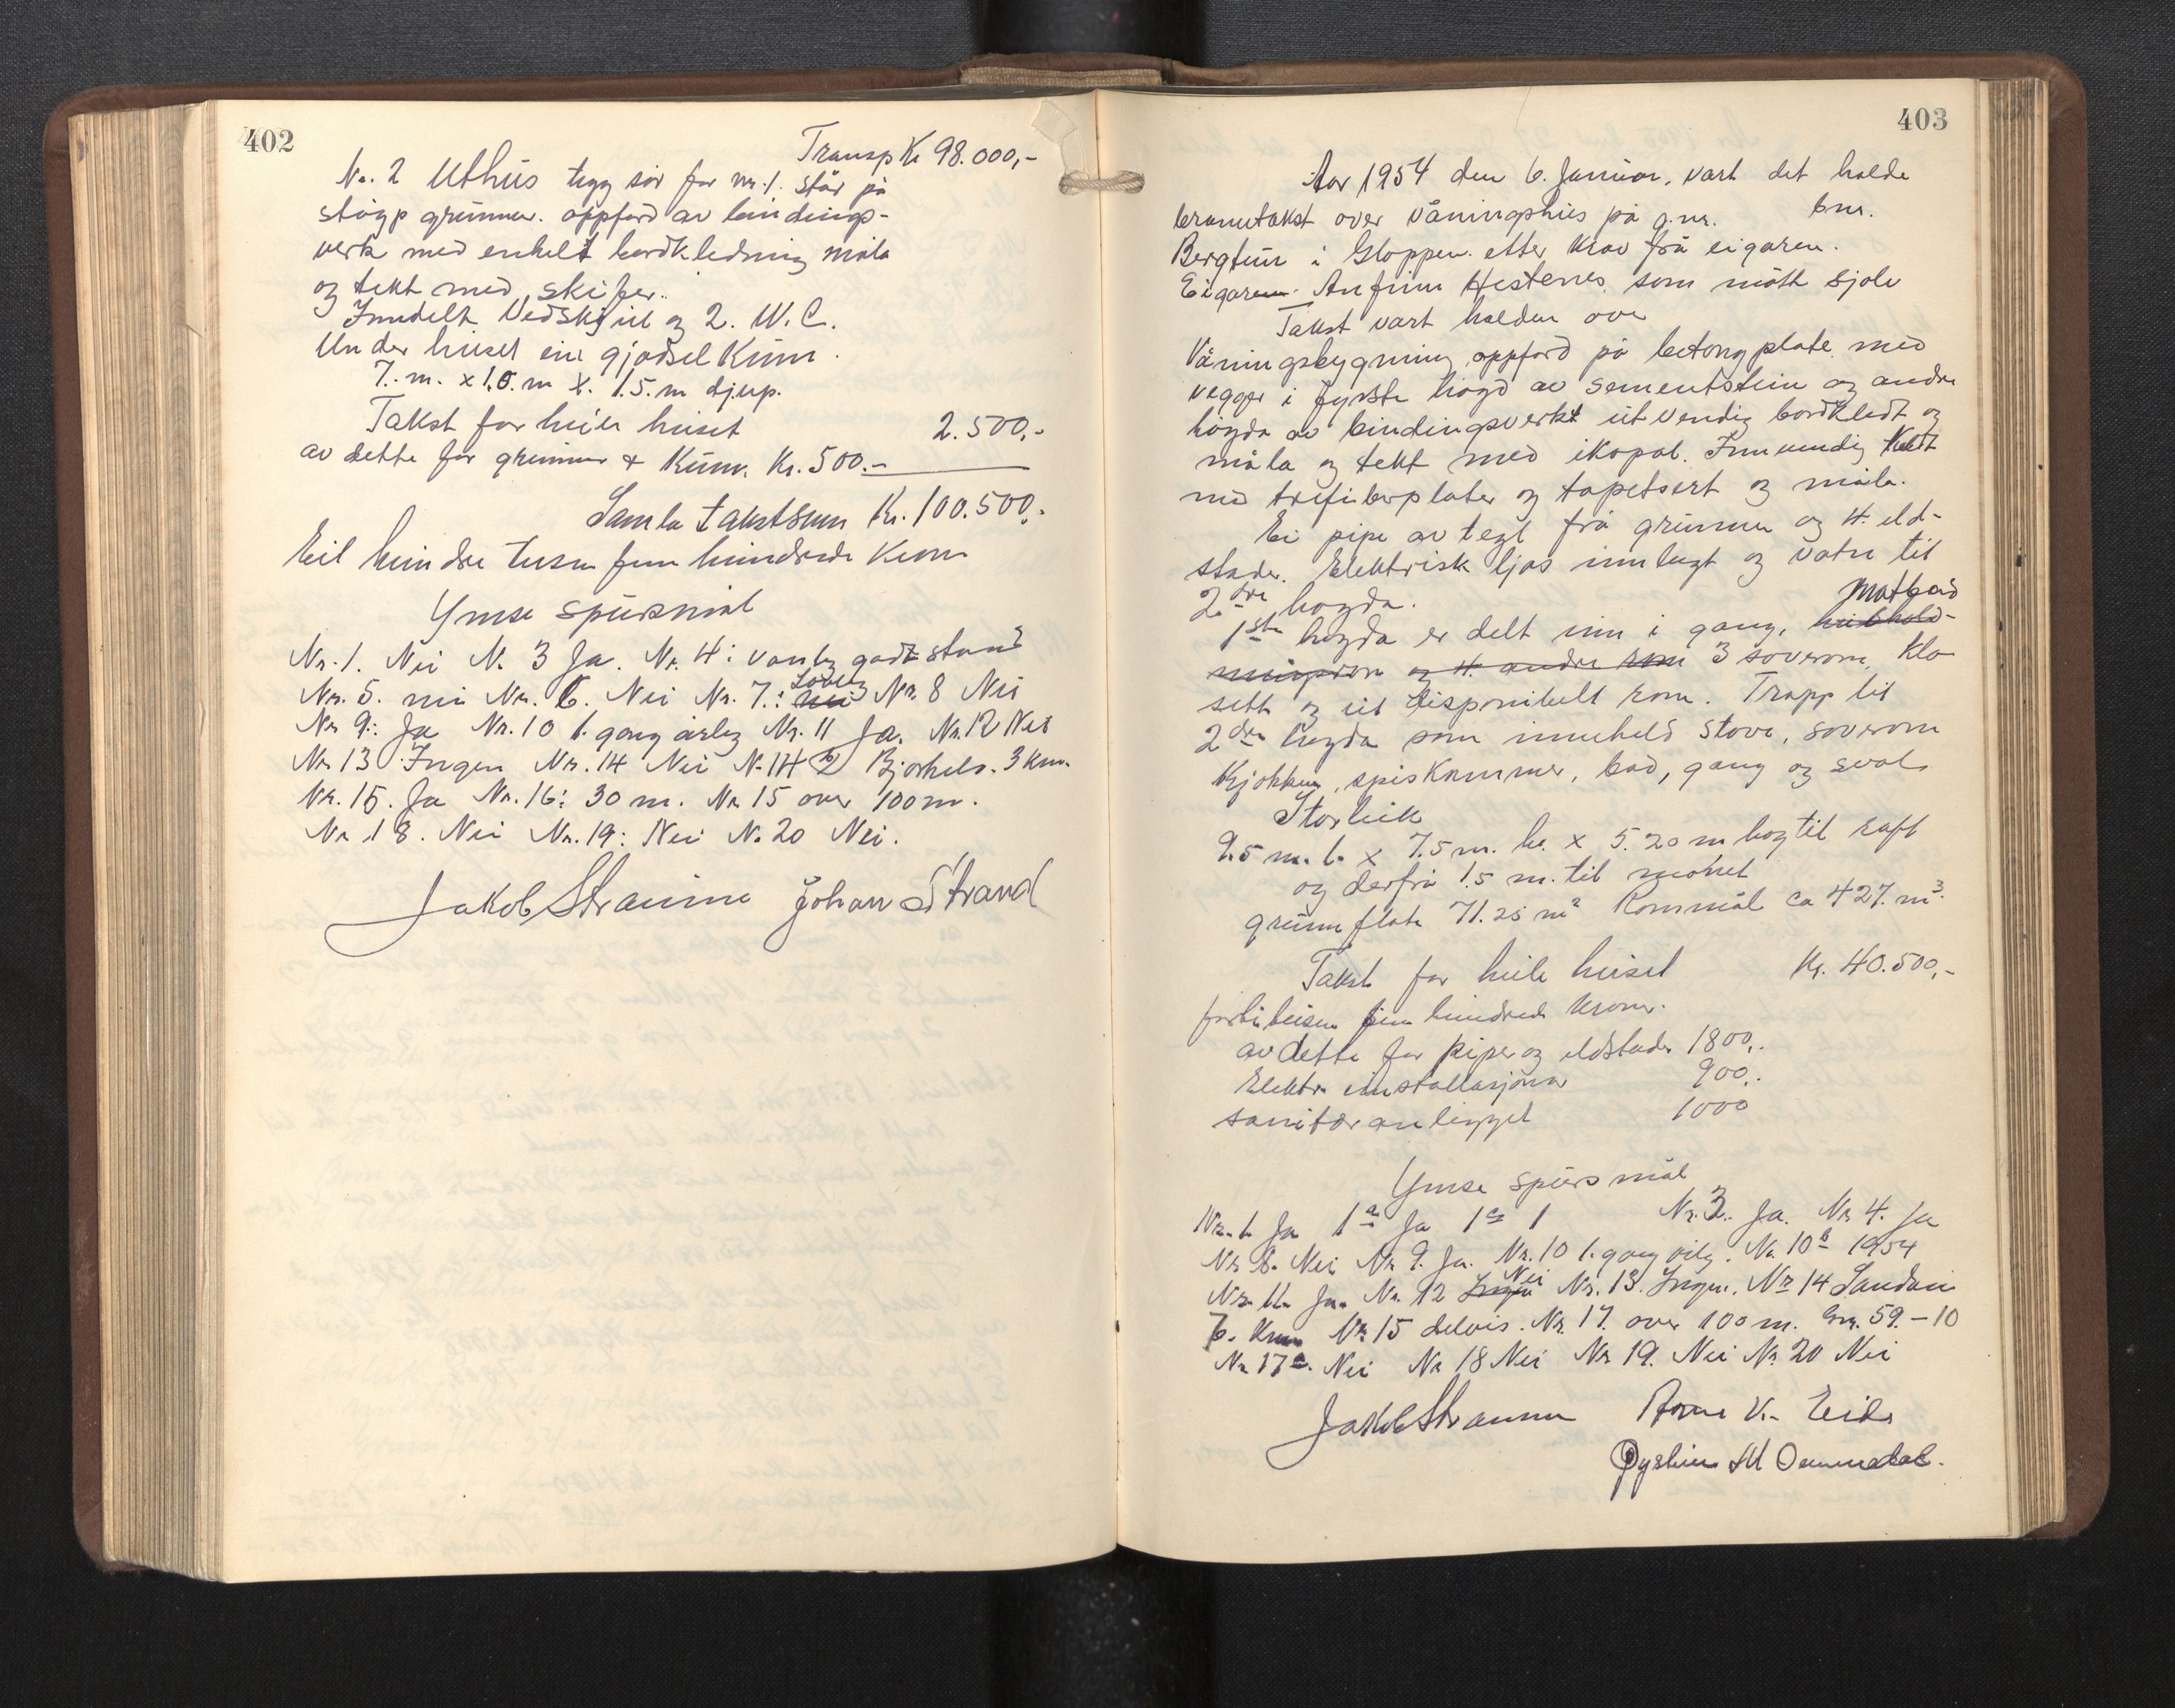 402
Transp Kr 98.000,-
Nr. 2 Uthus tygg sør for nr. 1. står på
støyp grunnmur. oppførd av bindings-
verk med enkelt bordkledning måla
og tekt med skifer.
Inndelt Vedskjul og 2. W.C.
Under huset ein gjødselkum.
7. m. x 1.5. m x. 1.5. m djup.
Takst for heile huset 2.500,-
av dette for grunnmur & Kum. Kr. 500.-
Samla takstsum Kr. 100.500,-
Eit hundre tusen fem hundrede Kron
Ymse spursmål
Nr. 1. Nei Nr. 3 Ja. Nr. 4: vanleg godt stand
Nr. 5. nei Nr. 6. Nei Nr. 7.: Lovleg Nr. 8 Nei
Nr 9: Ja Nr. 10 1. gang årleg Nr. 11 Ja. Nr. 12 Nei
Nr 13 Ingen Nr. 14 Nei Nr. 14 b Bjørkelo. 3 km.
Nr. 15. Ja Nr. 16: 30 m. Nr 15 over 100 m.
Nr 18. Nei Nr. 19: Nei Nr. 20 Nei.
Jakob Straume Johan Strand
403
Aar 1954 den 6. Januar, vart det halde
branntakst over våningshus på g.nr. bnr.
Bergtun i Gloppen. etter krav frå eigaren.
Eigaren Anfinn Hestenes. som møtte sjølv
Takst vart halden over
Våningsbygning oppførd på betongplate med
vegger i fyrste høgd av sementstein og andre
høgda av bindingsverk utvendig bordkledt og
måla og tekt med ikopal. Innvendig kledt
med trefiberplater og tapetsert og måla.
Ei pipe av tegl frå grunnen og 4. eld-
stader. Elektrisk ljos innlagt og vatn til
2dre høgda.
1ste høgda er delt inn i gang, Matbod
3 soverom, Klo
sett og eit disponibelt rom. Trapp til
2dre høgda som inneheld stove, soverom
Kjøkken, spiskammer, bad, gang og sval.
Storleik
9.5 m. l. x 7.5 m. br. x 5.20 m høg til raft
og derfrå 1.5 m. til mønet
grunnflate 71.25 m² Rommål ca 427. m³.
Takst for heile huset Kr. 40.500,-
førti tusen fem hundrede kroner.
av dette for piper og eldstader 1800,.
Elektr. installasjonar 900,.
sanitæranlegget 1000
Ymse spursmål
Nr. 1 Ja 1a Ja 1c 1 Nr. 3. Ja. Nr 4. Ja
Nr 8. Nei Nr 9. Ja. Nr. 10 1. gang årleg. Nr. 10b 1954
Nr. 11. Ja. Nr. 12 Nei Nr. 13. Ingen. Nr 14 Sandane
6. km Nr 15 delvis. Nr. 17. over 100 m. Gnr. 59. - 10
Nr 17a. Nei Nr 18 Nei Nr 19. Nei Nr. 20 Nei
Jakob Straume Arne K. Eide
Øystein M Ommedal.